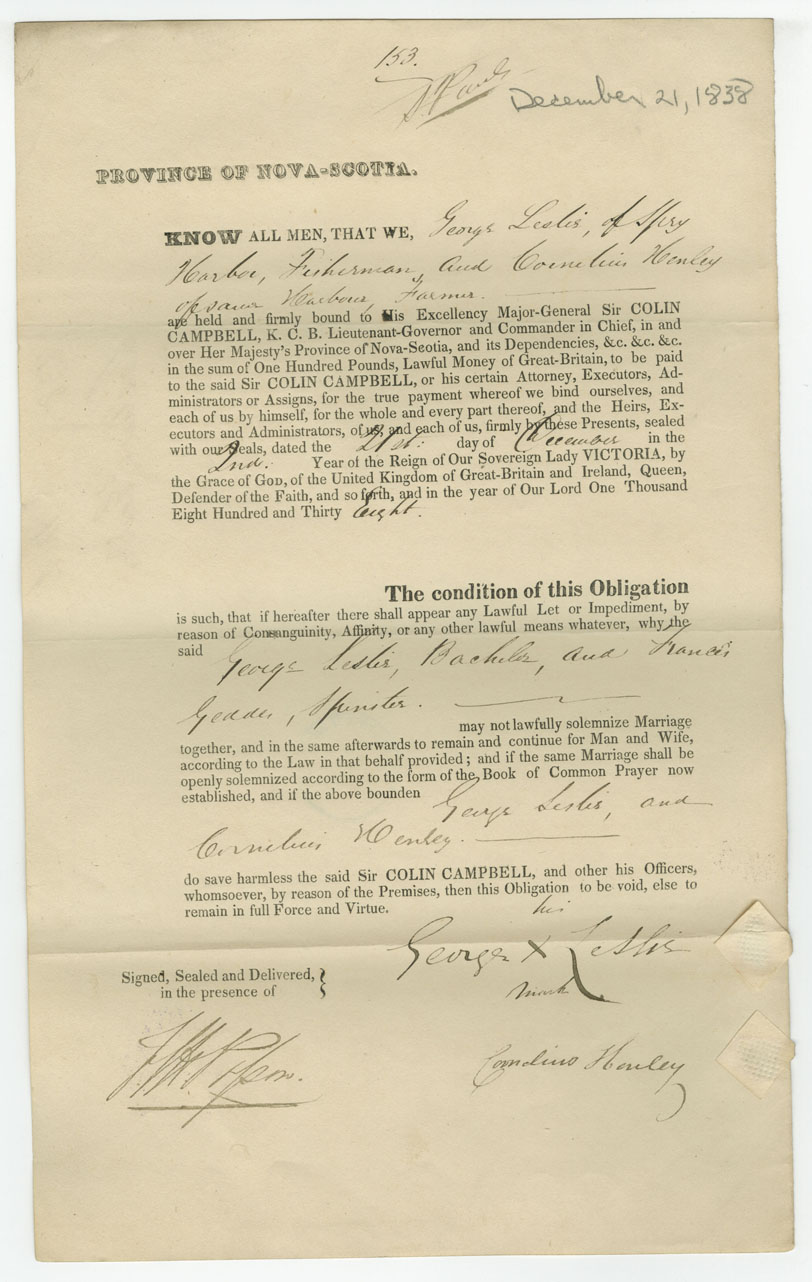 153.
December 21, 1838
PROVINCE OF NOVA-SCOTIA.
KNOW ALL MEN, THAT WE, George Leslie, of Spry
Harbor, Fisherman, and Cornelius Henley
of same Harbour, Farmer.
are held and firmly bound to His Excellency Major-General Sir COLIN
CAMPBELL, K. C. B. Lieutenant-Governor and Commander in Chief, in and
over Her Majesty's Province of Nova-Scotia, and its Dependencies, &c. &c. &c.
in the sum of One Hundred Pounds, Lawful Money of Great-Britain, to be paid
to the said Sir COLIN CAMPBELL, or his certain Attorney, Executors, Ad-
ministrators or Assigns, for the true payment whereof we bind ourselves, and
each of us by himself, for the whole and every part thereof, and the Heirs, Ex-
ecutors and Administrators, of us, and each of us, firmly by these Presents, sealed
with our Seals, dated the 21st: day of December in the
2nd: Year of the Reign of Our Sovereign Lady VICTORIA, by
the Grace of GOD, of the United Kingdom of Great-Britain and Ireland, Queen,
Defender of the Faith, and so forth, and in the year of Our Lord One Thousand
Eight Hundred and Thirty Eight.
The condition of this Obligation
is such, that if hereafter there shall appear any Lawful Let or Impediment, by
reason of Consanguinity, Affinity, or any other lawful means whatever, why the
said George Leslie, Bachelor, and Francis
Geddes, Spinster.
may not lawfully solemnize Marriage
together, and in the same afterwards to remain and continue for Man and Wife,
according to the Law in that behalf provided; and if the same Marriage shall be
openly solemnized according to the form of the Book of Common Prayer now
established, and if the above bounden George Leslie, and
Cornelius Henley.
do save harmless the said Sir COLIN CAMPBELL, and other his Officers,
whomsoever, by reason of the Premises, then this Obligation to be void, else to
remain in full Force and Virtue.
his
George X Leslie
mark
Signed, Sealed and Delivered,
in the presence of
Cornelius Henley